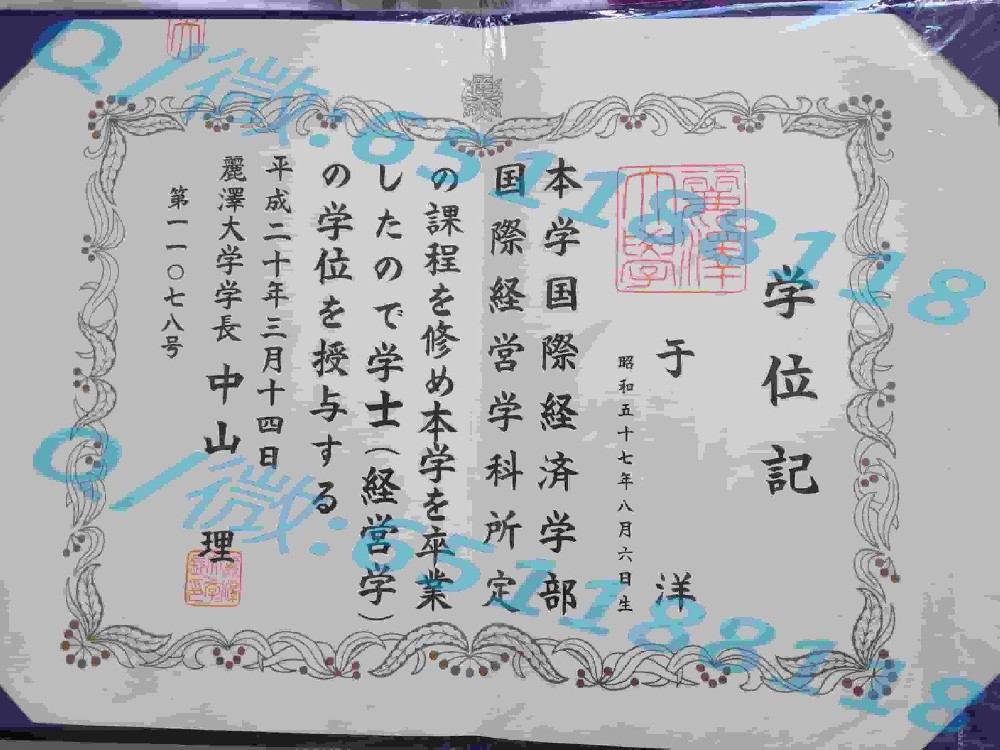 学位記
麗澤大學
于洋
昭和五十七年八月六日生
本学国際経済学部
国際経営学科所定
の課程を修め本学を卒業
したので学士（経営学）
の学位を授与する
平成二十年三月十四日
麗澤大学学長 中山 理
第一一〇七八号
Q/微:651188118
Q/微:651188118